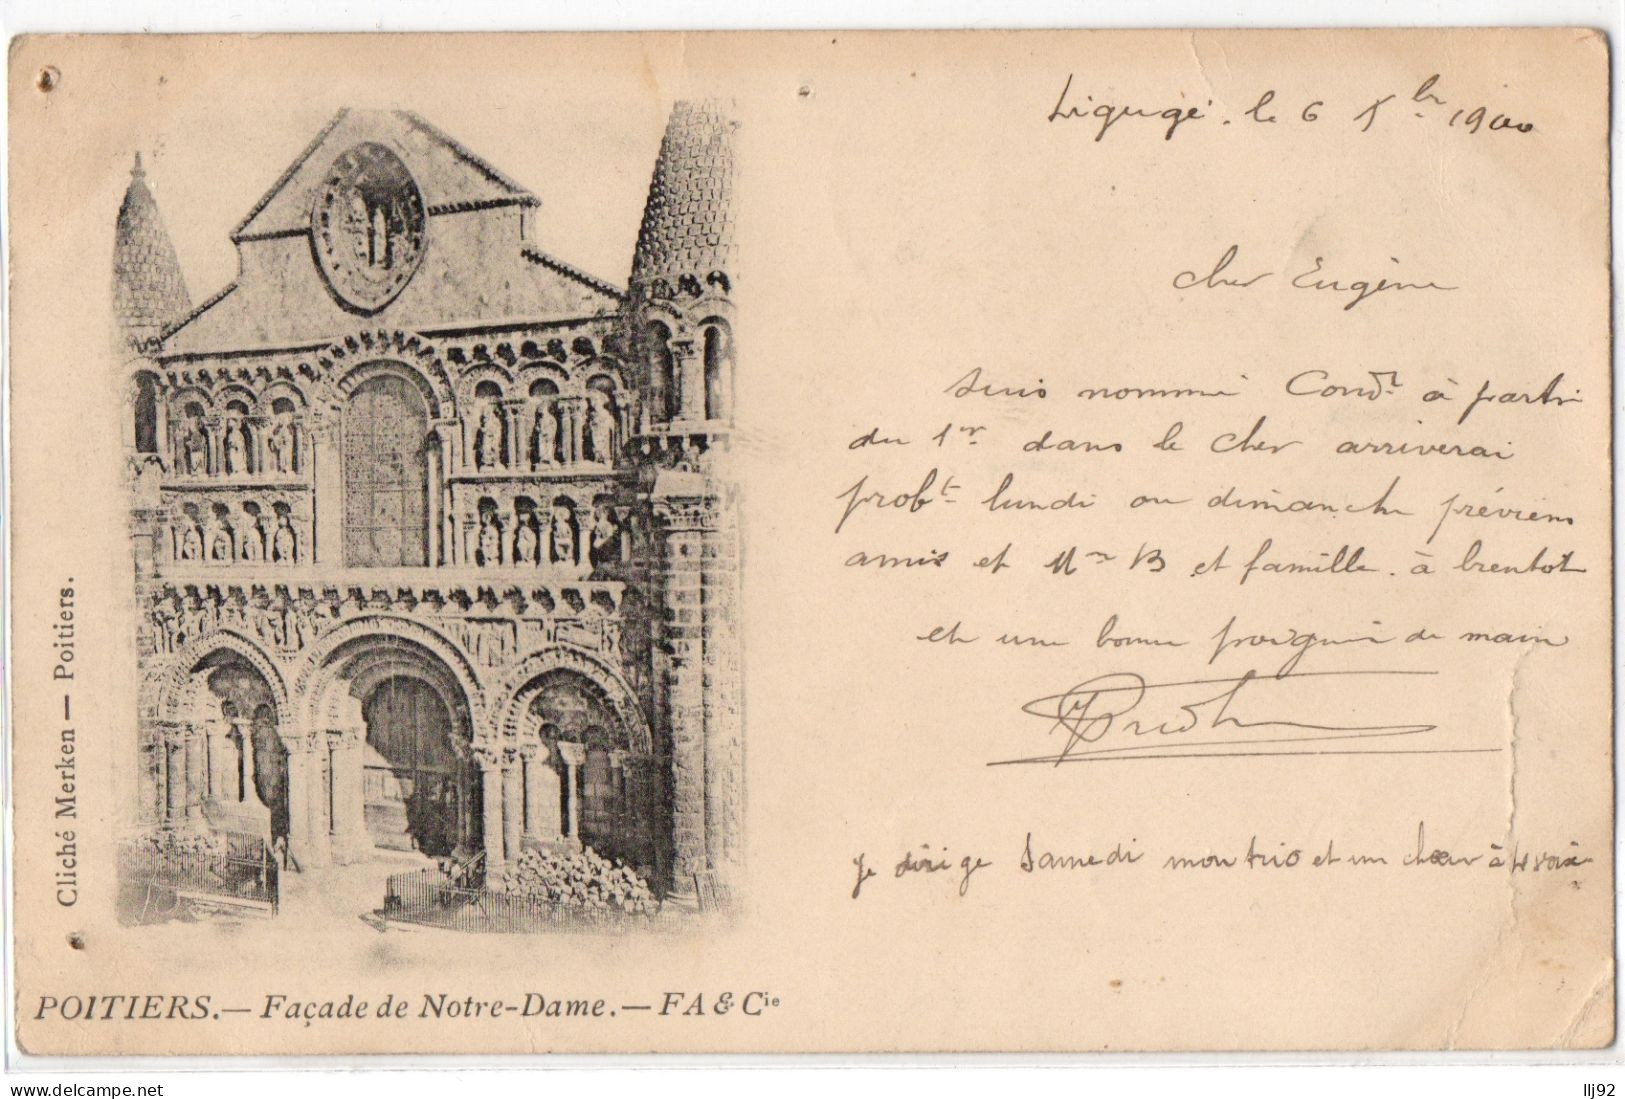 Ligugé. le 6 bre 1900
Cher Eugène
Suis nommé Condr à partir
du 1er dans le Cher arriverai
probt lundi ou dimanche préviens
amis et Mr B et famille. à bientot
et une bonne poignée de main
Je dirige Samedi mon trio et un chœur à 4 voix
Cliché Merken — Poitiers.
POITIERS. — Façade de Notre-Dame. — FA & Cie
www.delcampe.net
llj92